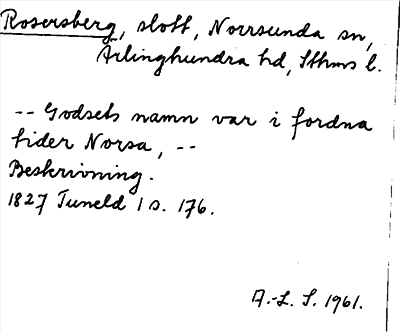 Rosersberg, slott, Norrsunda sn,
Ärlinghundra hd, Sthms l.
-- Godsets namn var i fordna
tider Norsa, --
Beskrivning.
1827 Tuneld 1 s. 176.
A.-L. S. 1961.